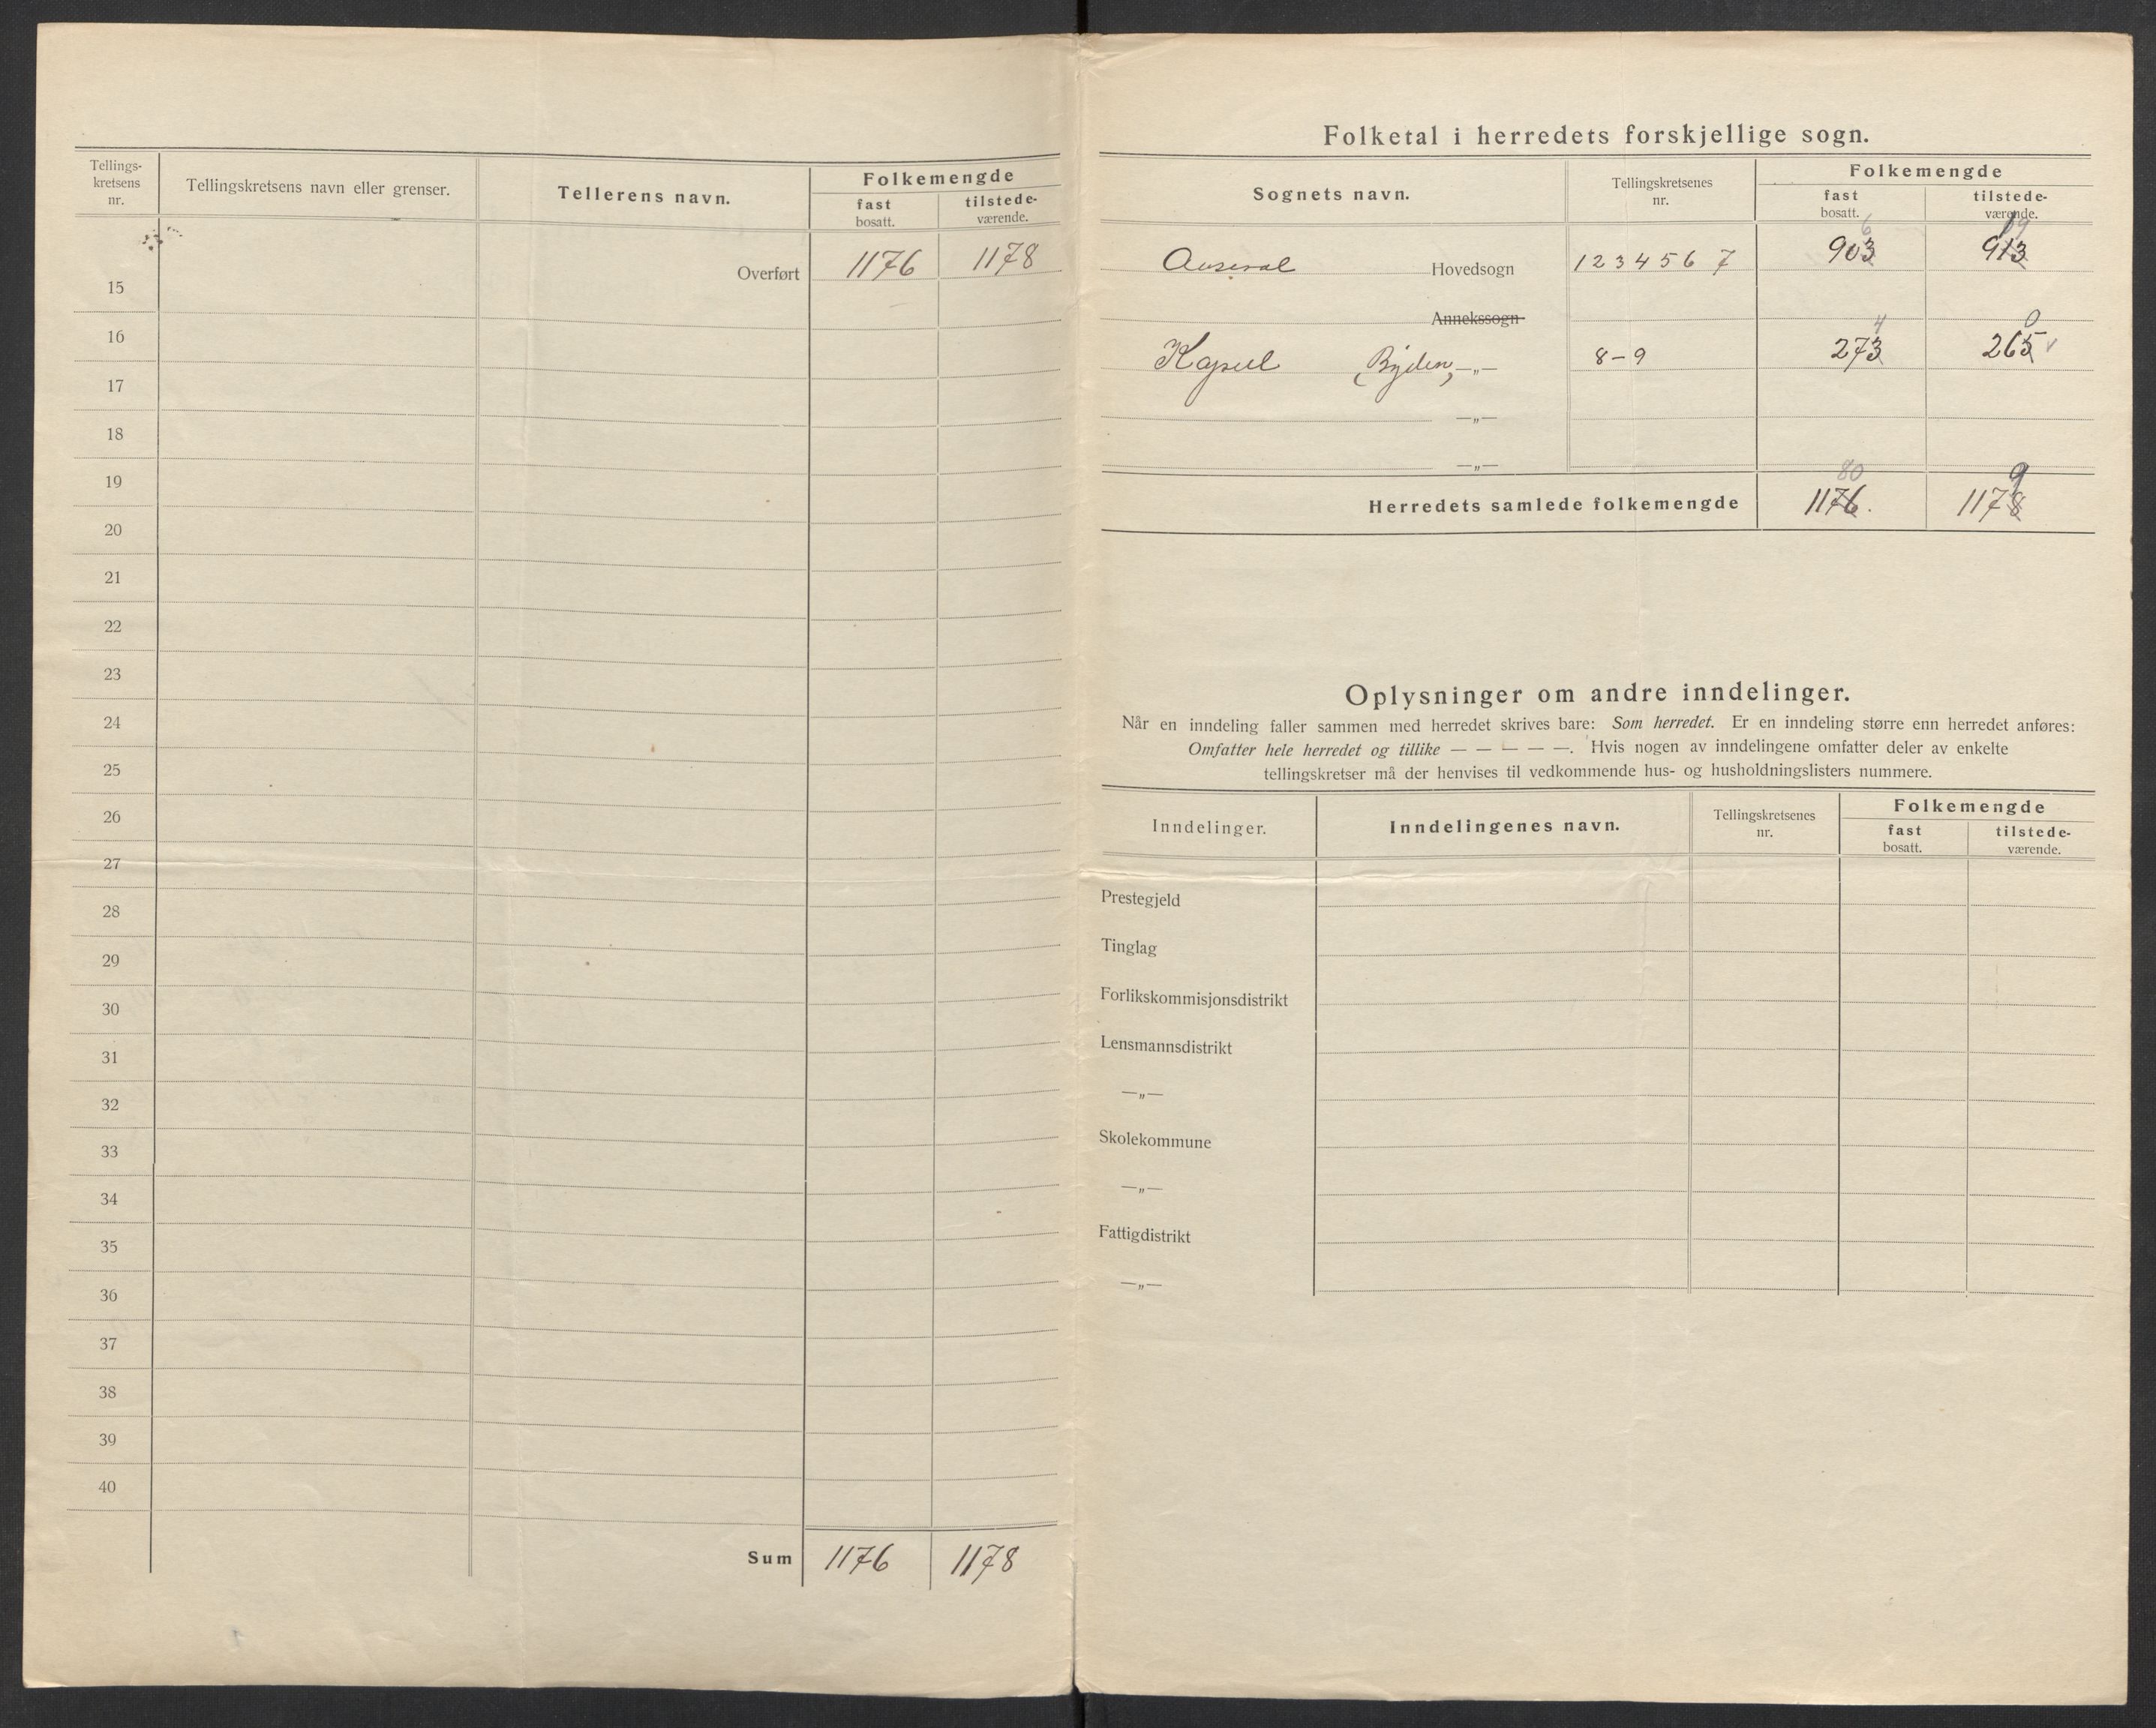 Tellings-
kretsens
nr.
Tellingskretsens navn eller grenser.
Tellerens navn.
Folkemengde
fast
bosatt.
tilstede-
værende.
Overført 1176 1178
15
16
17
18
19
20
21
22
23
24
25
26
27
28
29
30
31
32
33
34
35
36
37
38
39
40
Sum 1176 1178
Folketal i herredets forskjellige sogn.
Sognets navn.
Tellingskretsenes
nr.
Folkemengde
fast
bosatt.
tilstede-
værende.
6 19
Hovedsogn 1 2 3 4 5 6 7 903 913
Annekssogn
4 0
(Bygden) —„— 8-9 273 265
—„—
—„—
80 9
Herredets samlede folkemengde 1176. 1178
Oplysninger om andre inndelinger.
Når en inndeling faller sammen med herredet skrives bare: Som herredet. Er en inndeling større enn herredet anføres:
Omfatter hele herredet og tillike — — — — —. Hvis nogen av inndelingene omfatter deler av enkelte
tellingskretser må der henvises til vedkommende hus- og husholdningslisters nummere.
Inndelinger.
Inndelingenes navn.
Tellingskretsenes
nr.
Folkemengde
fast
bosatt.
tilstede-
værende.
Prestegjeld
Tinglag
Forlikskommisjonsdistrikt
Lensmannsdistrikt
—„—
Skolekommune
—„—
Fattigdistrikt
—„—